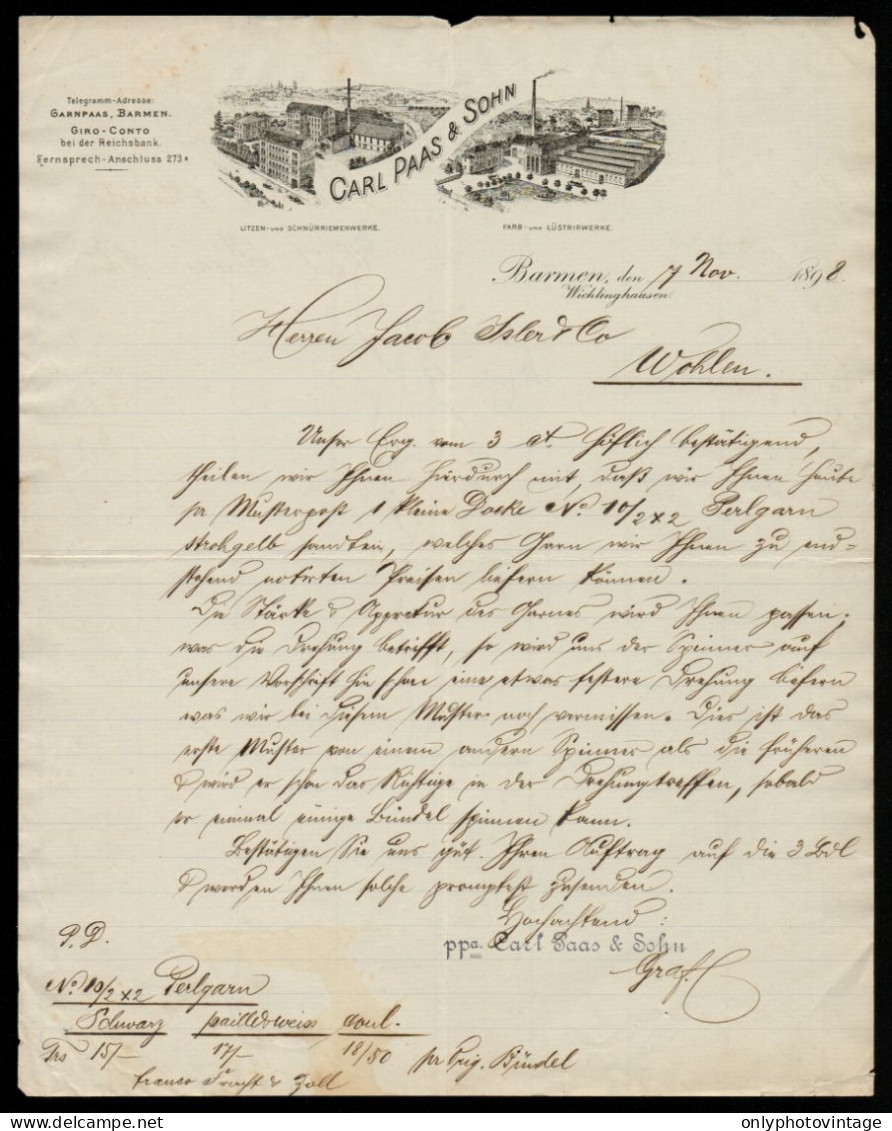 Telegramm-Adresse:
GARNPAAS, BARMEN.
GIRO-CONTO
bei der Reichsbank.
Fernsprech-Anschluss 273
CARL PAAS & SOHN
LITZEN- UND SCHNÜRRIEMENWERKE.
FARB- UND LÜSTRIRWERKE.
Barmen, den 7 Nov. 1898.
Wichlinghausen.
Herren Jacob Isler & Co
Wohlen.
Unser Erg. vom 3 ct. höflich bestätigend,
theilen wir Ihnen hierdurch mit, daß wir Ihnen heute
pr Musterpost 1 kleine Docke No. 10/2x2 Perlgarn
strohgelb sandten, welches Garn wir Ihnen zu end-
stehend notirten Preisen liefern können.
Die Stärke & Appretur des Garnes wird Ihnen passen;
was die Drehung betrifft, so wird uns der Spinner auf
unsere Vorschrift hin schon eine etwas festere Drehung liefern
was wir bei diesem Muster noch vermissen. Dies ist das
erste Muster von einem andern Spinner als die früheren
& wird er schon das Richtige in der Drehung treffen, sobald
er einmal einige Bündel spinnen kann.
Bestätigen Sie uns güt. Ihren Auftrag auf die 3 Bdl
& werden Ihnen solche promptest zusenden.
Hochachtend:
ppa. Carl Paas & Sohn
Graf
P. D.
No 10/2x2 Perlgarn
Schwarz paille & weiss coul.
Frs 15/- 17/- 18/50 pr Orig. Bündel
franco Fracht & Zoll
www.delcampe.net
onlyphotovintage